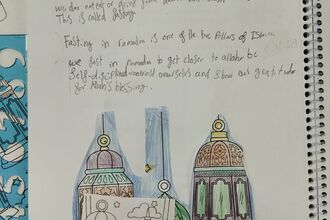 we don't eat or drink from
This is called fasting.
Fasting in ramadan is one of the five Pillars of Islam.
we fast in ramadan to get closer to allah, be
self-disciplined control ourselves and show our gratitude
for Allah's blessing.